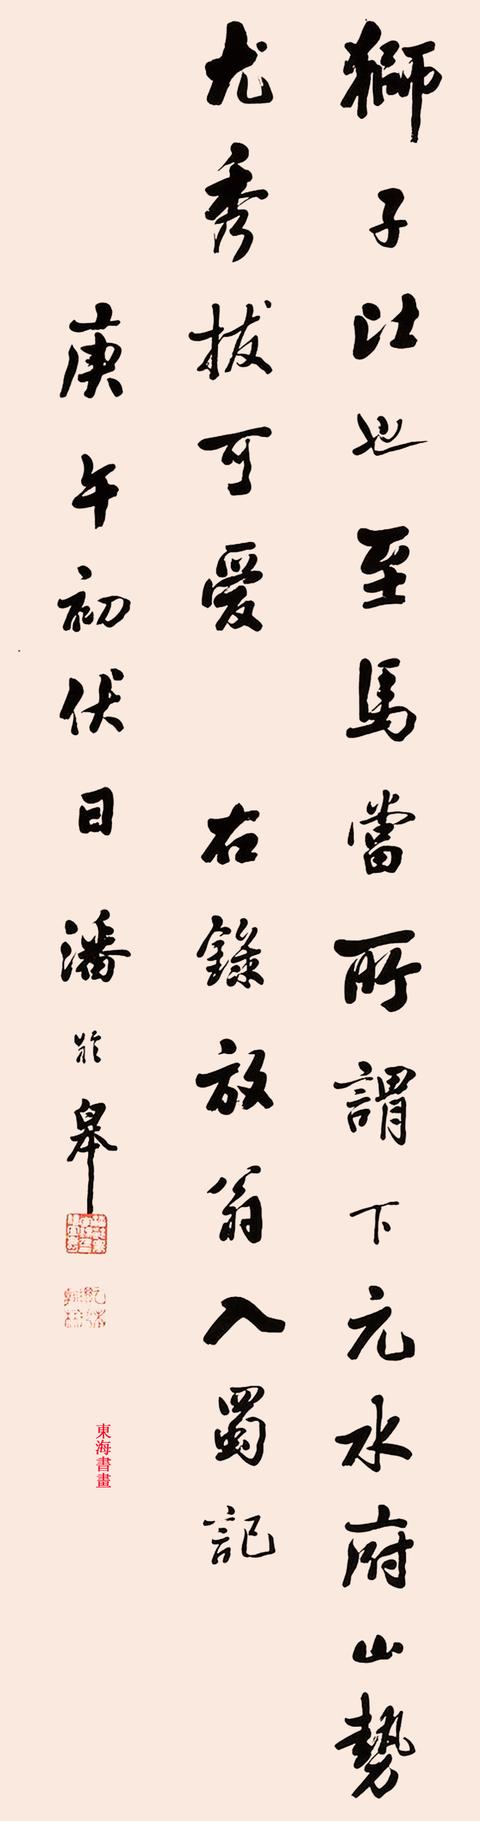 獅子也至馬當所謂下元水府山勢
尤秀拔可愛 右錄放翁入蜀記
庚午初伏日 潘齡皋
東海書畫